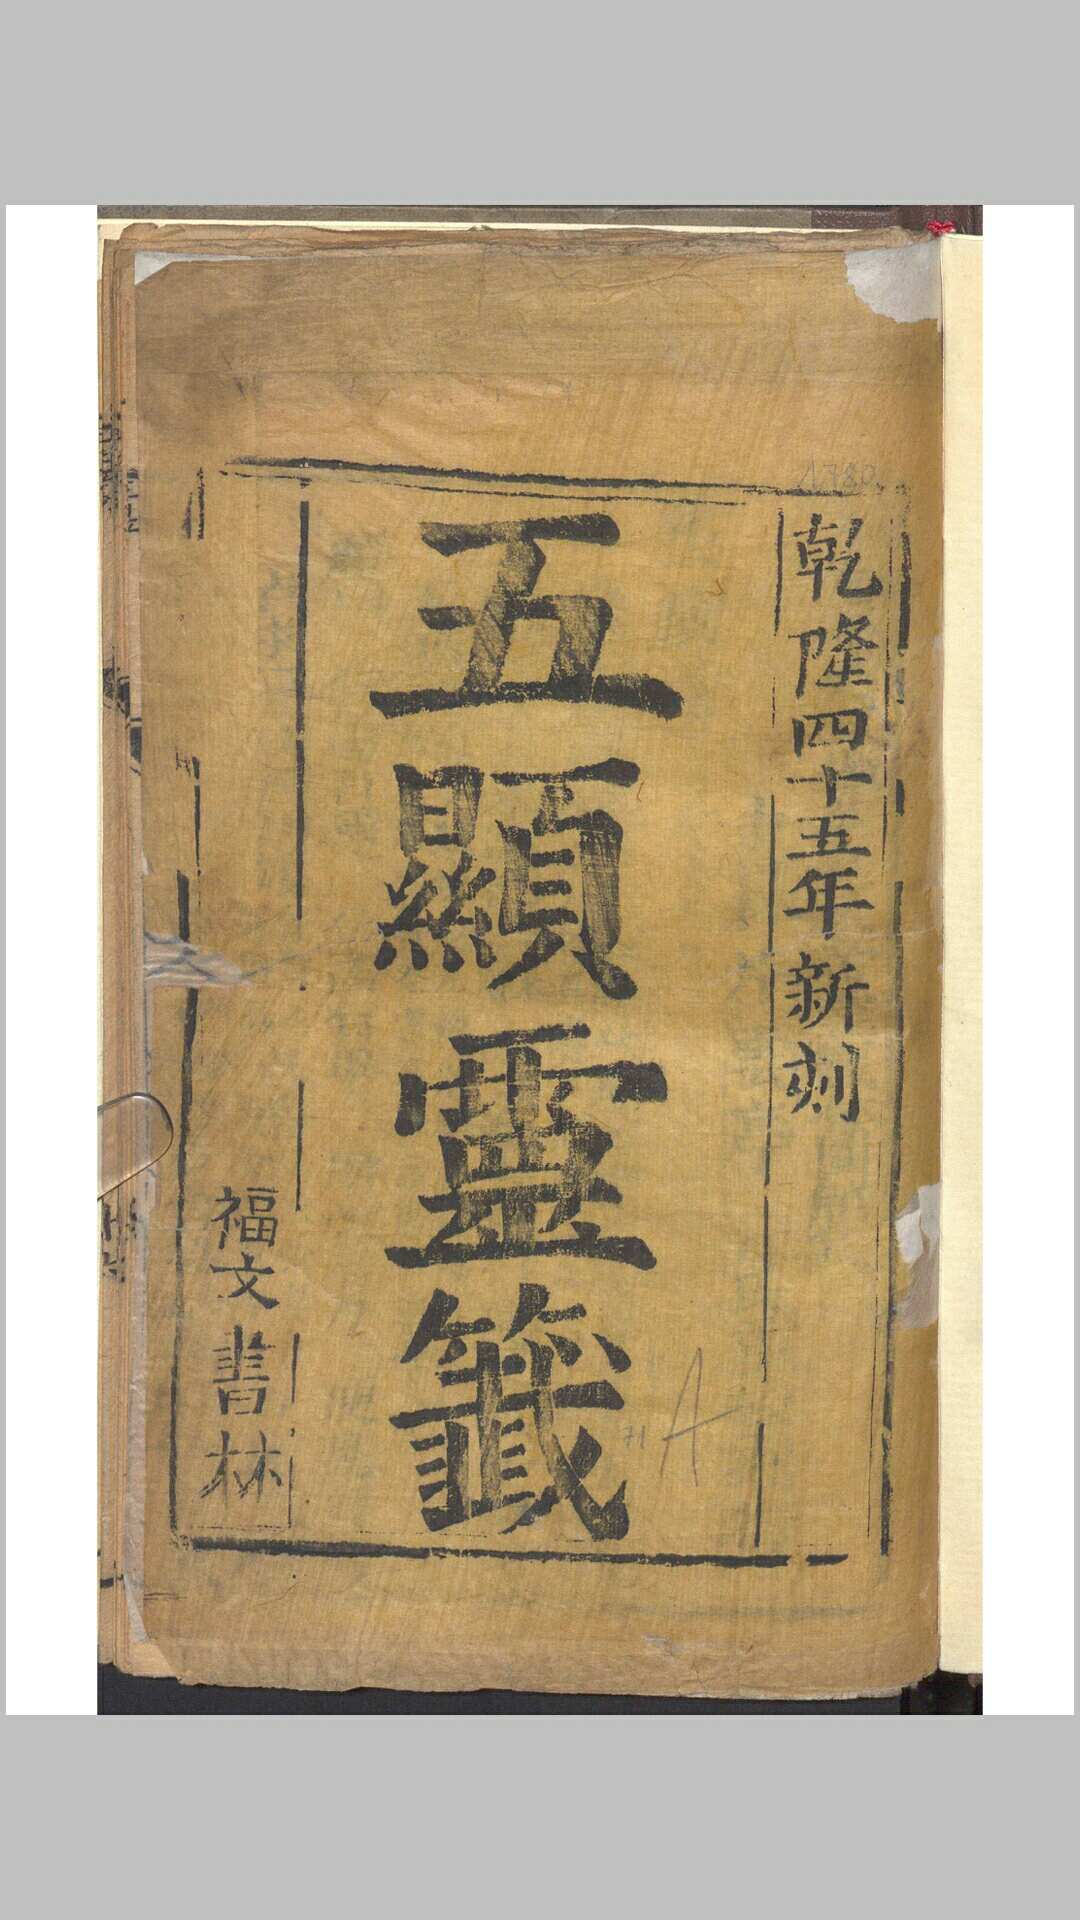 乾隆四十五年新刻
五顯靈籤
福文書林
1780
71 A